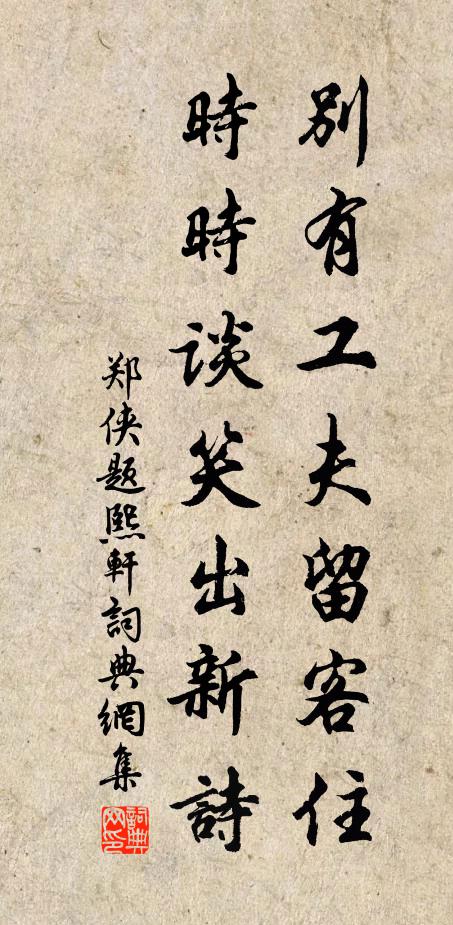 別有工夫留客住
時時談笑出新詩
郑侠题熙軒詞典網集
詞典网印